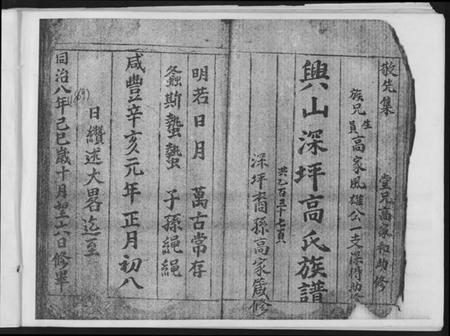 敬先集
堂兄高家和助修
族兄生員高家風雄公一支深待助修
興山深坪高氏族譜
共乙百三十七頁
深坪裔孫高家箴修
明若日月 萬古常存
螽斯蟄蟄 子孫繩繩
咸豐辛亥元年正月初八
日纘述大畧迄至
同治八年己巳歲十月初六日修畢